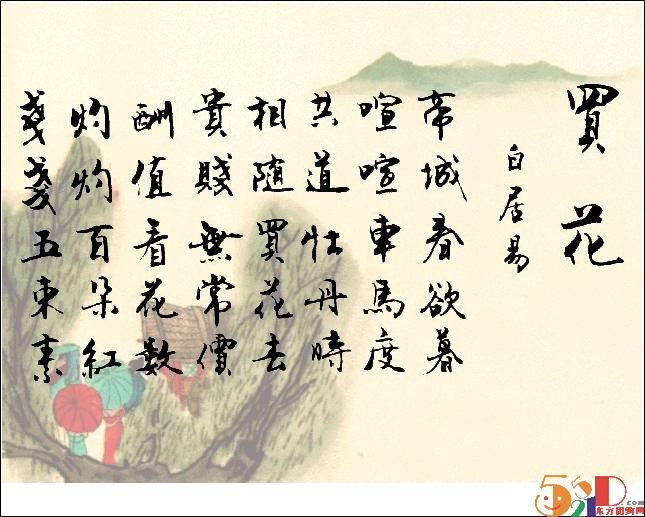 買花
白居易
帝城春欲暮
喧喧車馬度
共道牡丹時
相隨買花去
貴賤無常價
酬值看花數
灼灼百朵紅
戔戔五束素
5 2 1 D .com
东方团购网